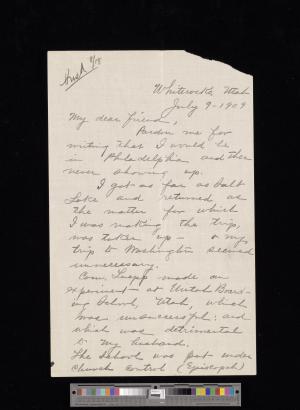 8/18
Whiterocks, Utah
July 9-1909
My dear friend,
Pardon me for
writing that I would be
in Philadelphia and then
never showing up.
I got as far as Salt
Lake and returned as
the matter for which
I was making the trip,
was taken up - & my
trip to Washington seemed
unnecessary.
Com. Leupp made an
experiment - at Uintah Board-
ing School, Utah, which
was unsuccessful; and
which was detrimental
to my husband.
The school was put under
church control (Episcopal)